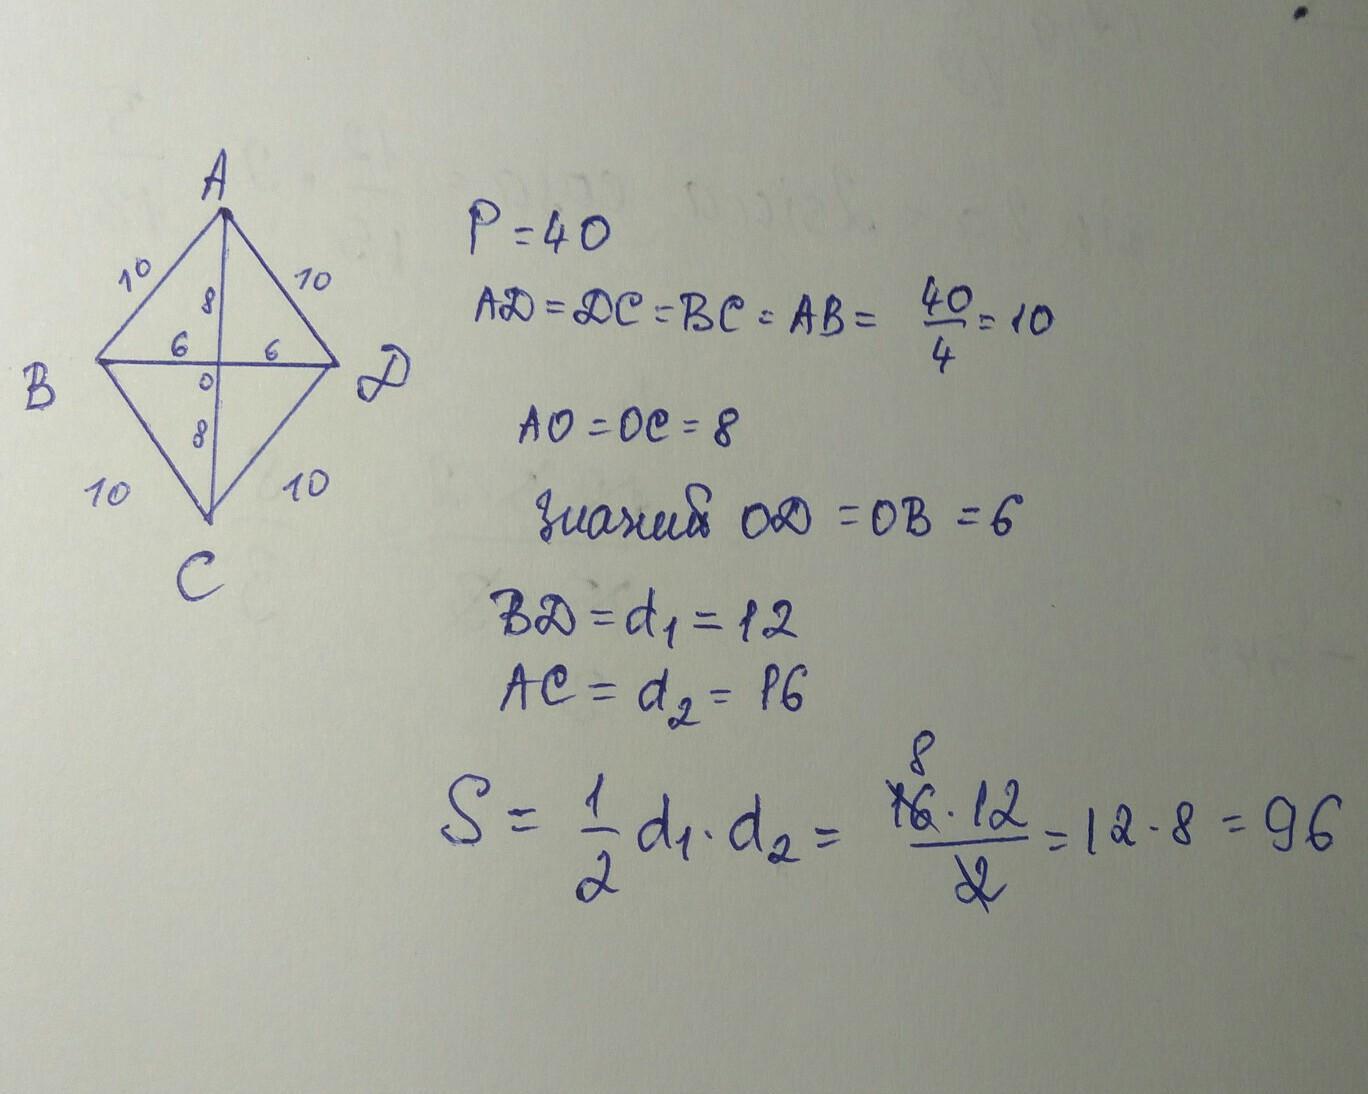 A
10
10
8
6
6
B
O
D
8
10
10
C
P = 40
AD = DC = BC = AB = 40/4 = 10
AO = OC = 8
OD = OB = 6
BD = d₁ = 12
AC = d₂ = 16
S = 1/2 d₁ · d₂ = 16 · 12/2 = 12 · 8 = 96
8